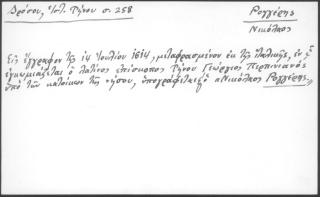 Δρόσου, Ἱστ. Τήνου σ. 258
Ρογγέρης
Νικόλαος
Εἰς ἔγγραφον τῆς 14 Ἰουλίου 1614, μεταφρασμένον ἐκ τῆς ἰταλικῆς, ἐν ᾧ
ἐγκωμιάζεται ὁ λατῖνος ἐπίσκοπος Τήνου Γεώργιος Περπινιανός
ὑπὸ τῶν κατοίκων τῆς νήσου, ὑπογράφεται ὁ «Νικόλαος Ρογγέρης»